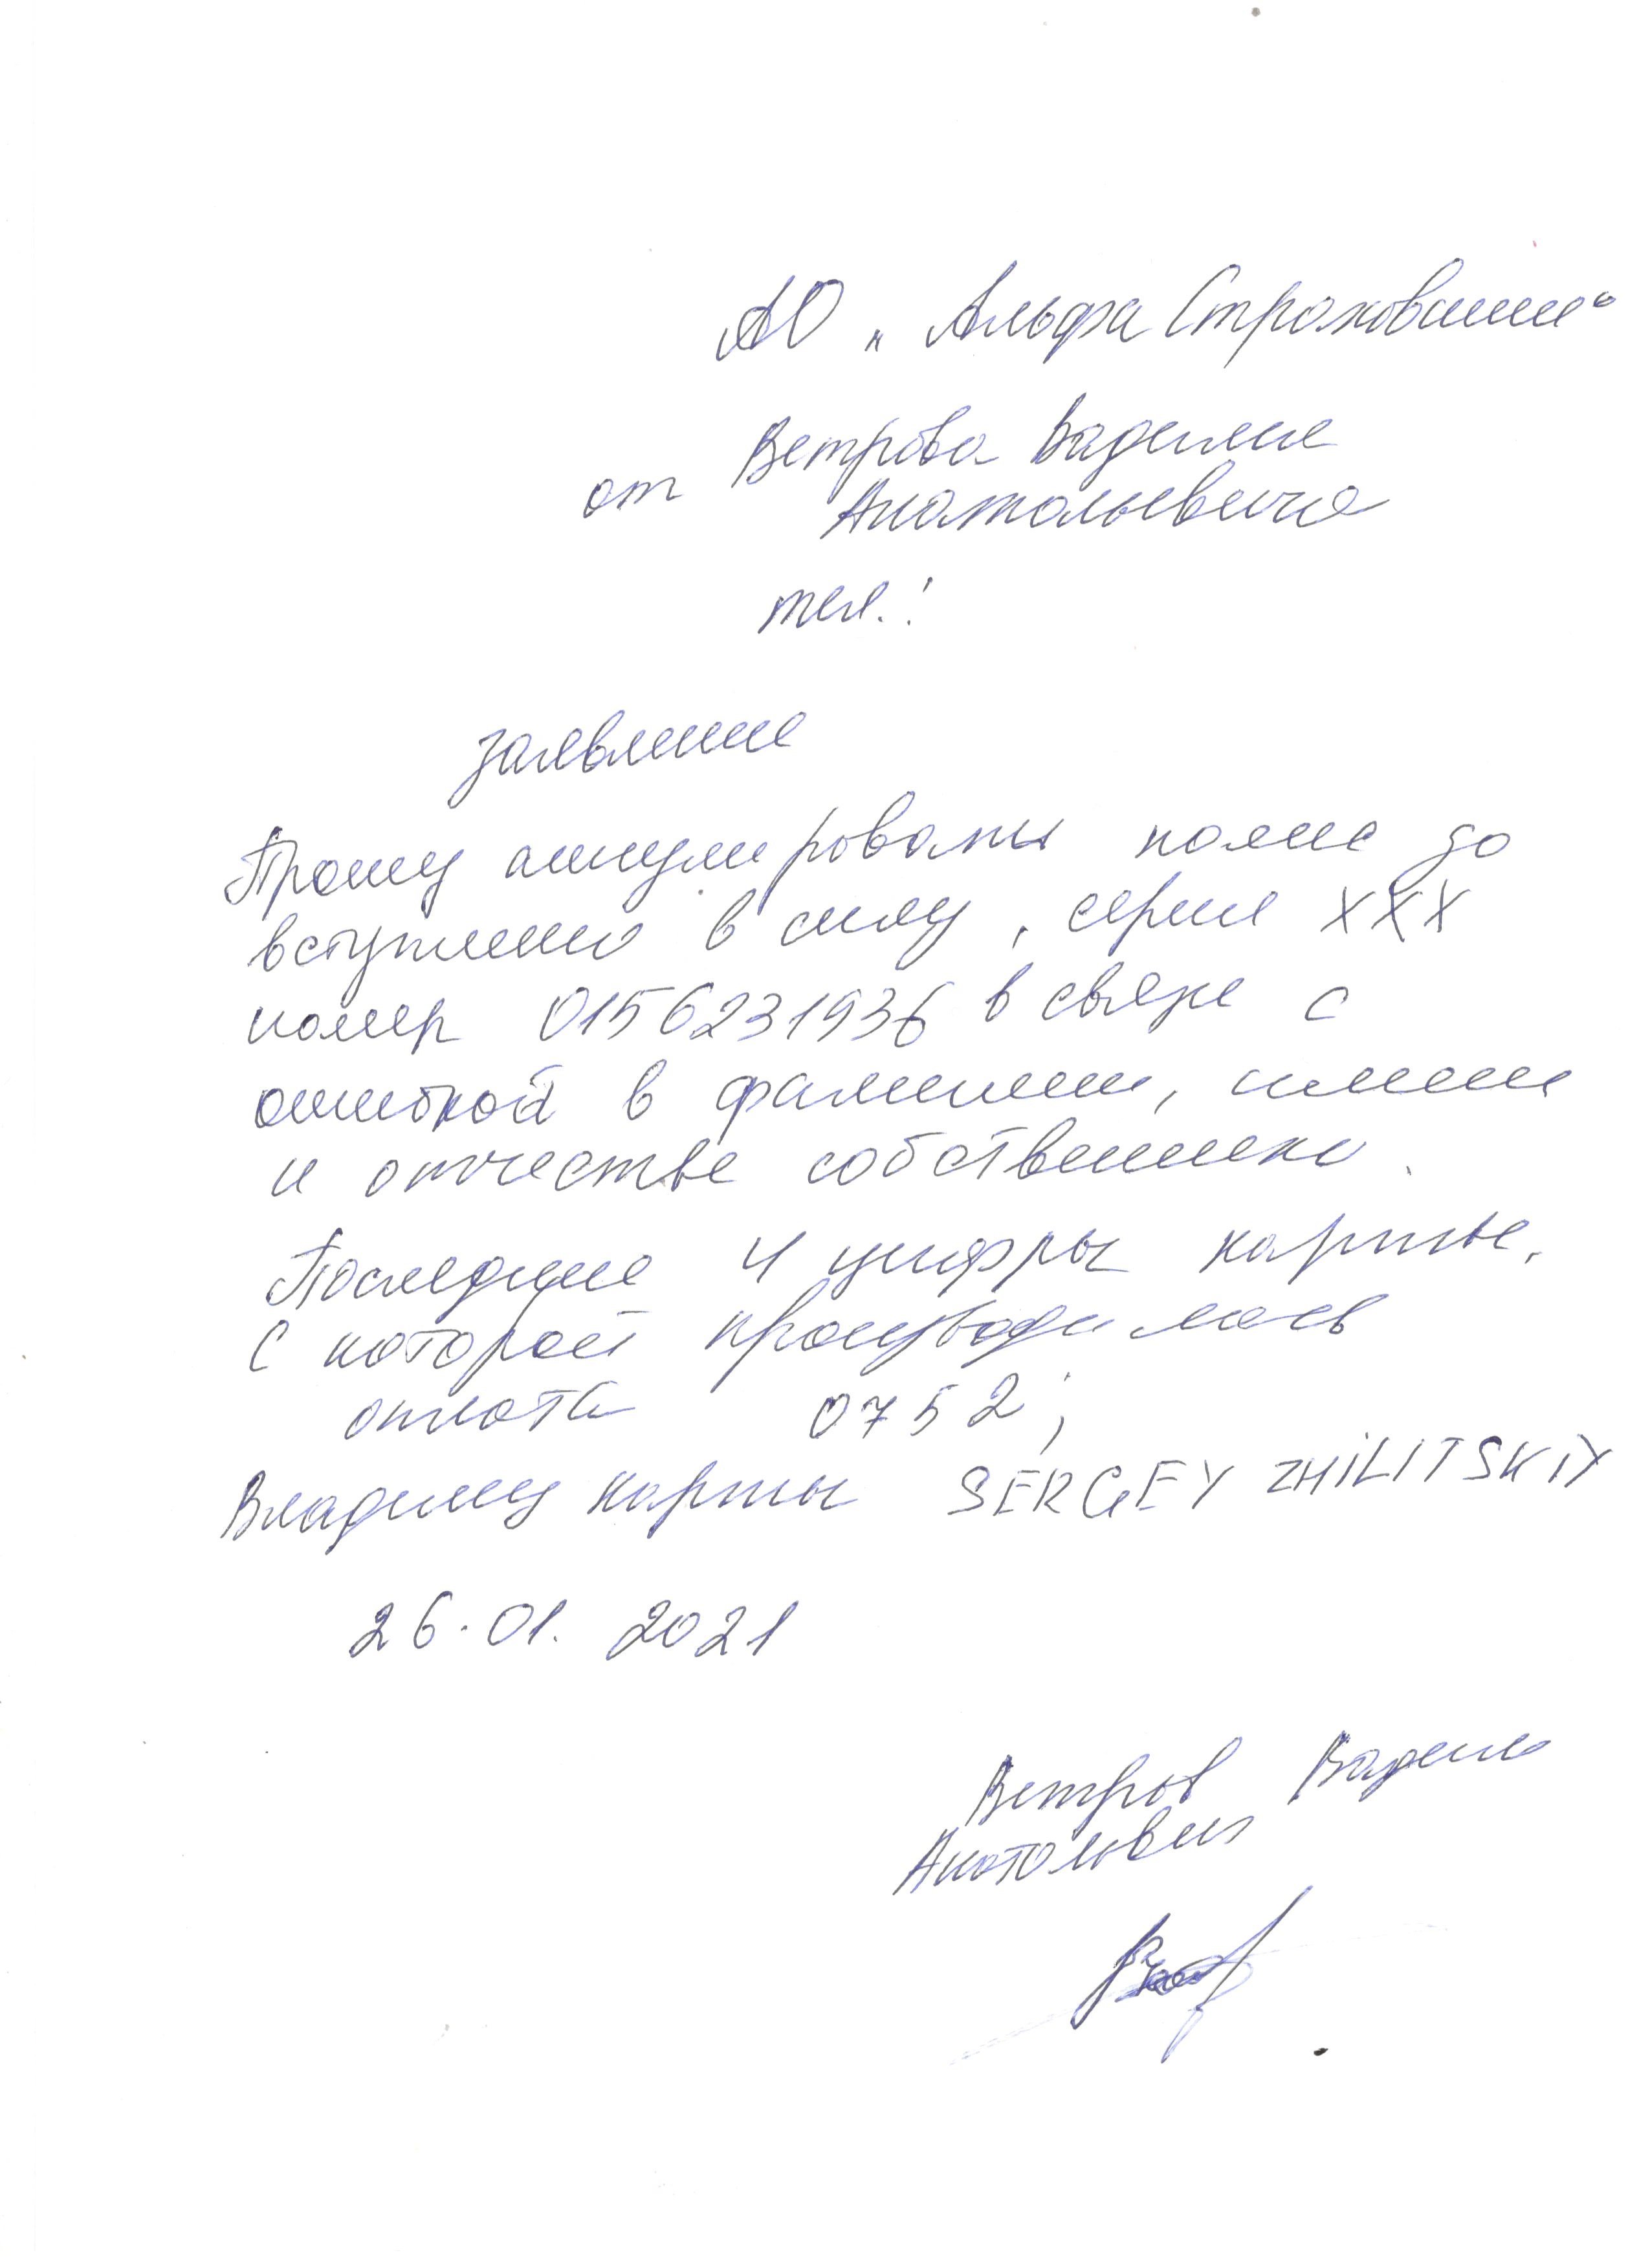 АО "Альфа Страхование"
от Ветрова Вадима
Анатольевича
тел.:
заявление
Прошу аннулировать полис до
вступления в силу, серия ХХХ
номер 0156231936 в связи с
ошибкой в фамилии, имени
и отчестве собственника.
Последние 4 цифры карты,
с которой производилась
оплата 0752;
Владелец карты SERGEY ZHILITSKIY
26.01.2021
Ветров Вадим
Анатольевич